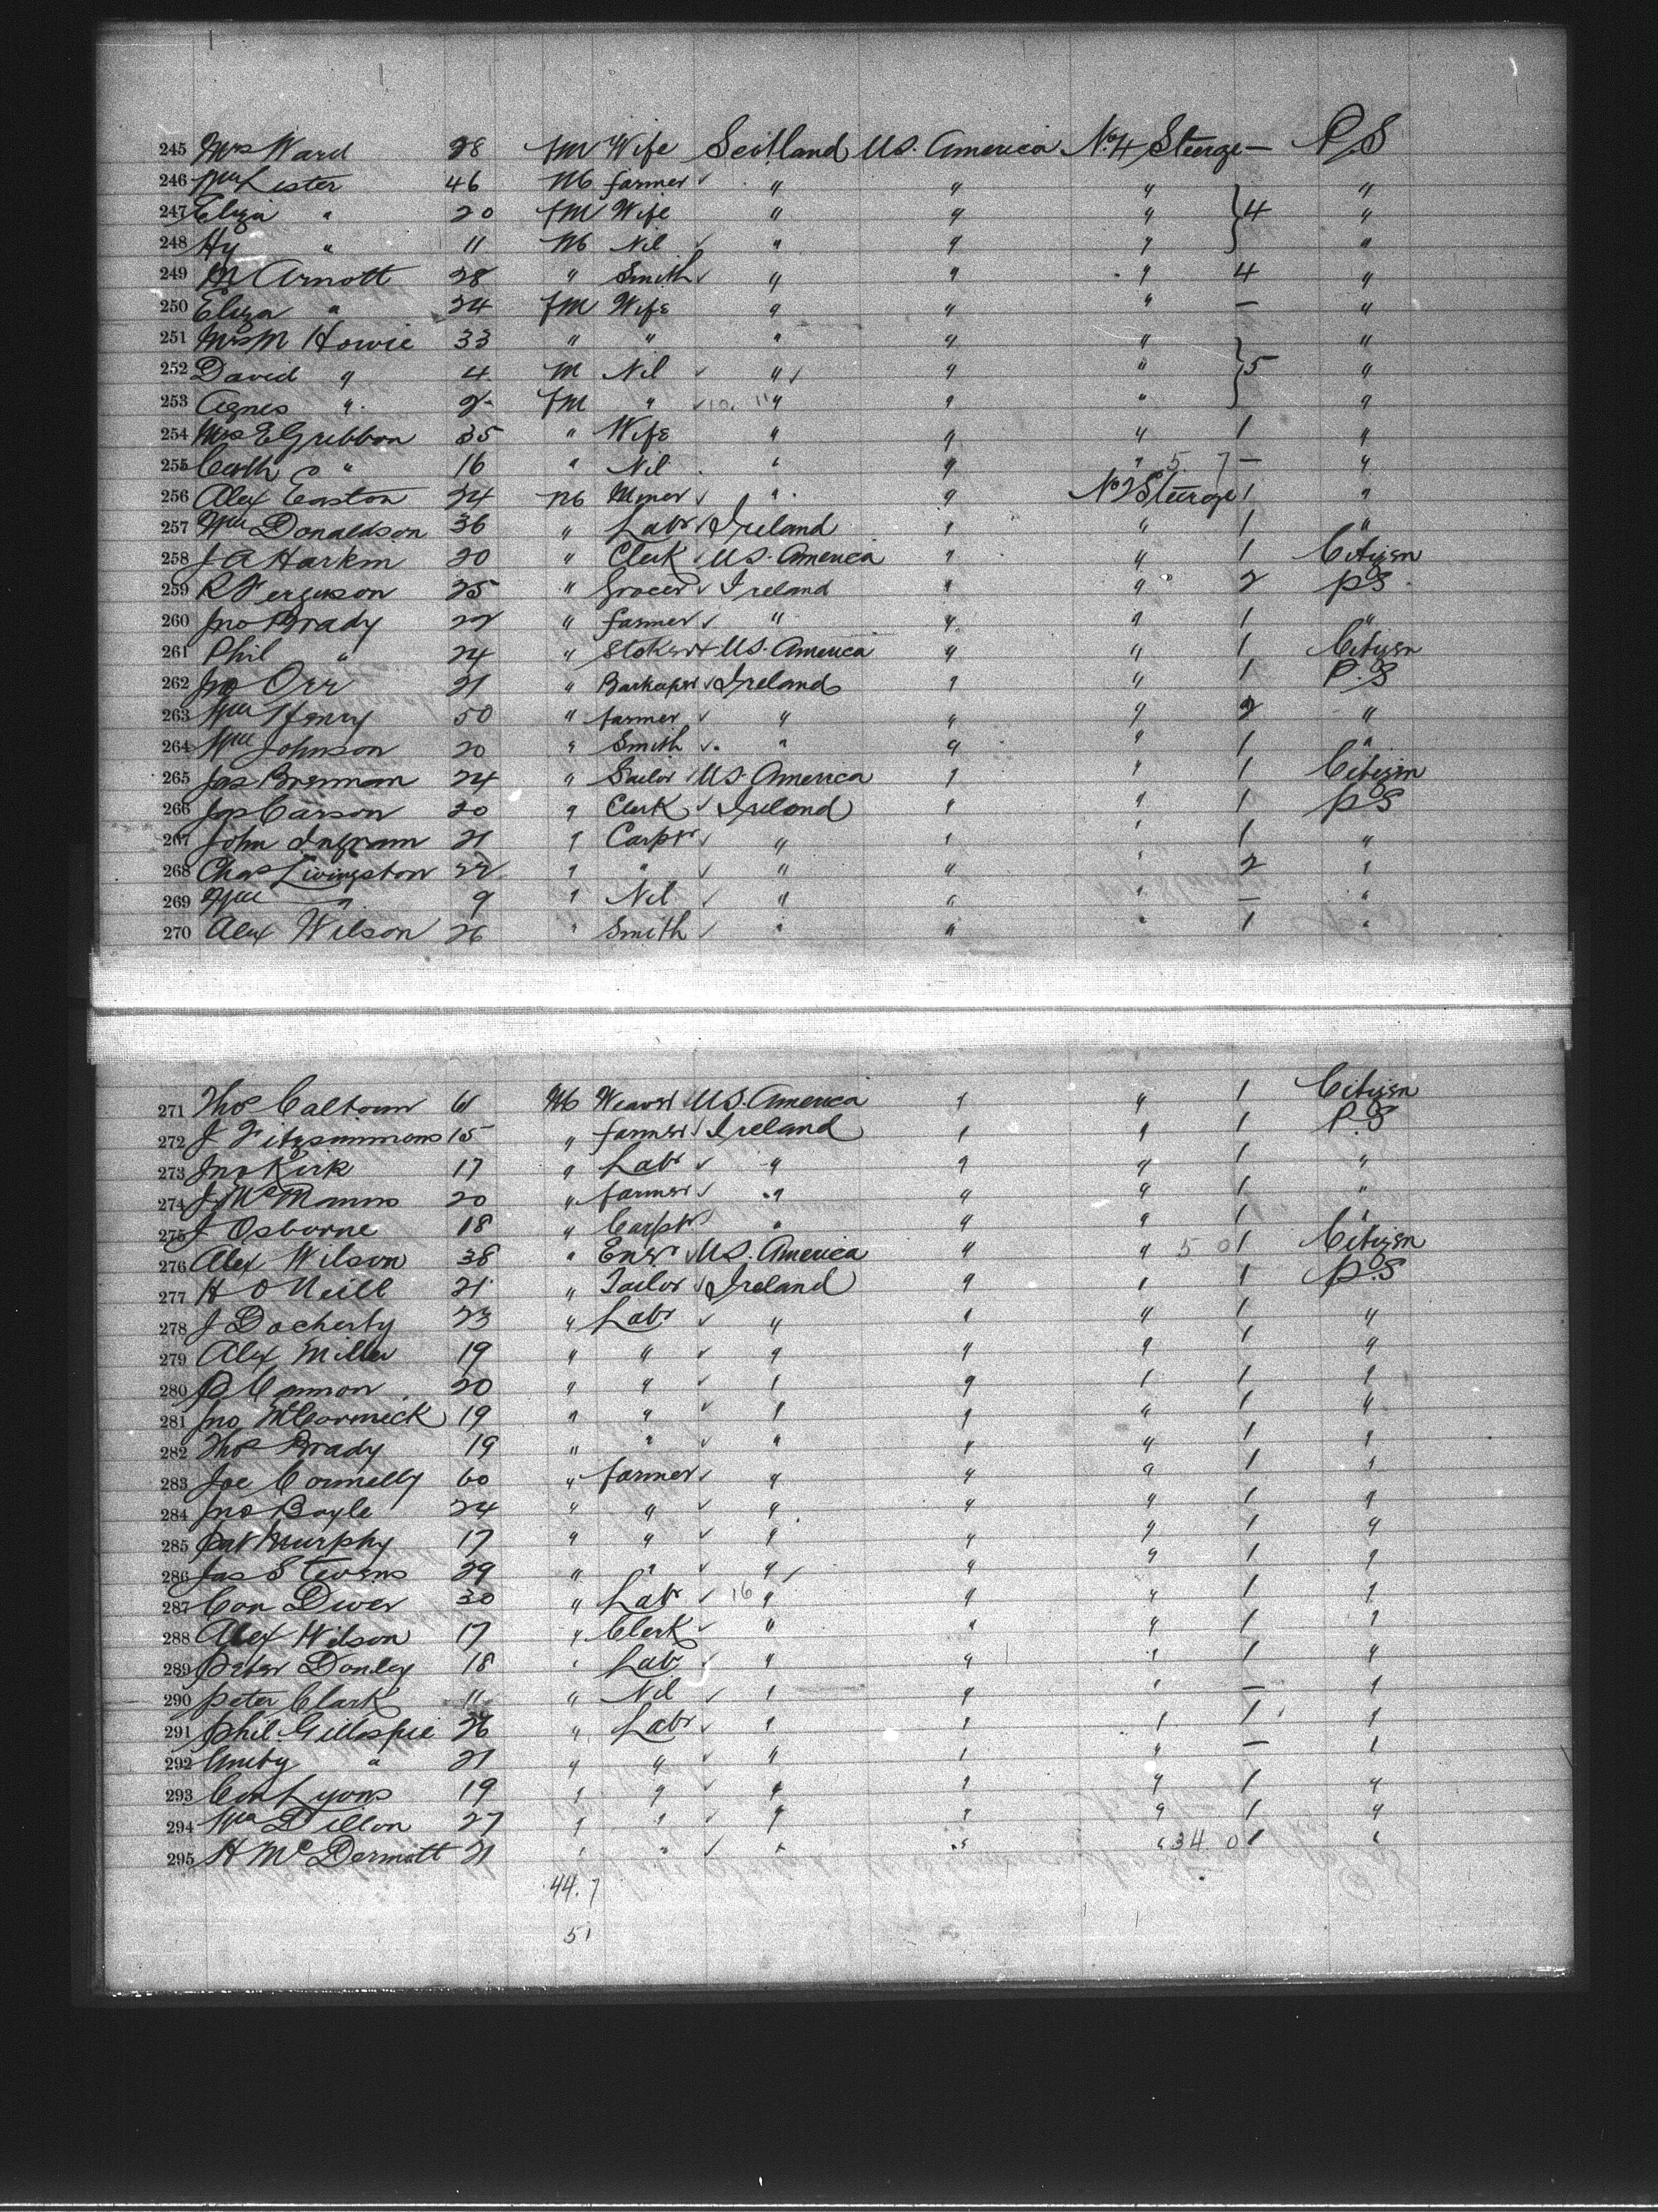 245 Mrs Ward 28 fm Wife Scotland U.S. America No 4 Steerge — P.S
246 Wm Lester 46 M farmer " " " "
247 Eliza " 20 fm Wife " " " } 4 "
248 Hy " 11 M Nil " " " "
249 M Arnott 28 " Smith " " " 4 "
250 Eliza " 24 fm Wife " " " — "
251 Mrs M Howie 33 " " " " " "
252 David " 4 M Nil " " " } 5 "
253 Agnes " 2 fm " 10. 11 " " " "
254 Mrs E Gribbon 35 " Wife " " " 1 "
255 Cath " 16 " Nil " " " 5. 7 — "
256 Alex Easton 24 M Miner " " No 2 Steerge 1 "
257 Wm Donaldson 36 " Labr Ireland " " 1 "
258 J A Harkin 20 " Clerk U.S. America " " 1 Citizen
259 R Ferguson 25 " Grocer Ireland " " 2 P.S
260 Jno Brady 22 " farmer " " " 1 "
261 Phil " 24 " Stoker U.S. America " " 1 Citizen
262 Jno Orr 21 " Barkeper Ireland " " 1 P.S
263 Wm Henry 50 " farmer " " " 2 "
264 Wm Johnson 20 " Smith " " " 1 "
265 Jas Brennan 24 " Sailor U.S. America " " 1 Citizen
266 Jas Carson 20 " Clerk Ireland " " 1 P.S
267 John Ingram 21 " Carptr " " " 1 "
268 Chas Livingston 22 " " " " " 2 "
269 Wm " 9 " Nil " " " — "
270 Alex Wilson 26 " Smith " " " 1 "
271 Thos Calhoun 61 M Weaver U.S. America " " 1 Citizen
272 J Fitzsimmons 15 " farmer Ireland " " 1 P.S
273 Jno Kirk 17 " Labr " " " 1 "
274 J McManus 20 " farmer " " " 1 "
275 J Osborne 18 " Carptr " " " 1 "
276 Alex Wilson 38 " Engr U.S. America " " 5 0 1 Citizen
277 H O Neill 21 " Tailor Ireland " " 1 P.S
278 J Docherty 23 " Labr " " " 1 "
279 Alex Miller 19 " " " " " 1 "
280 P Cannon 20 " " " " " 1 "
281 Jno McCormick 19 " " " " " 1 "
282 Thos Brady 19 " " " " " 1 "
283 Joe Connelly 60 " farmer " " " 1 "
284 Jno Boyle 24 " " " " " 1 "
285 Pat Murphy 17 " " " " " 1 "
286 Jas Stevens 29 " " " " " 1 "
287 Con Diver 30 " Labr 16 " " " 1 "
288 Alex Wilson 17 " Clerk " " " 1 "
289 Peter Donley 18 " Labr " " " 1 "
290 Peter Clark 11 " Nil " " " — "
291 Phil Gillespie 26 " Labr " " " 1 "
292 " 21 " " " " " — "
293 Con Lyons 19 " " " " " 1 "
294 Wm Dillon 27 " " " " " 1 "
295 H McDermott 21 " " " " " 34 0 1 "
44. 7
51